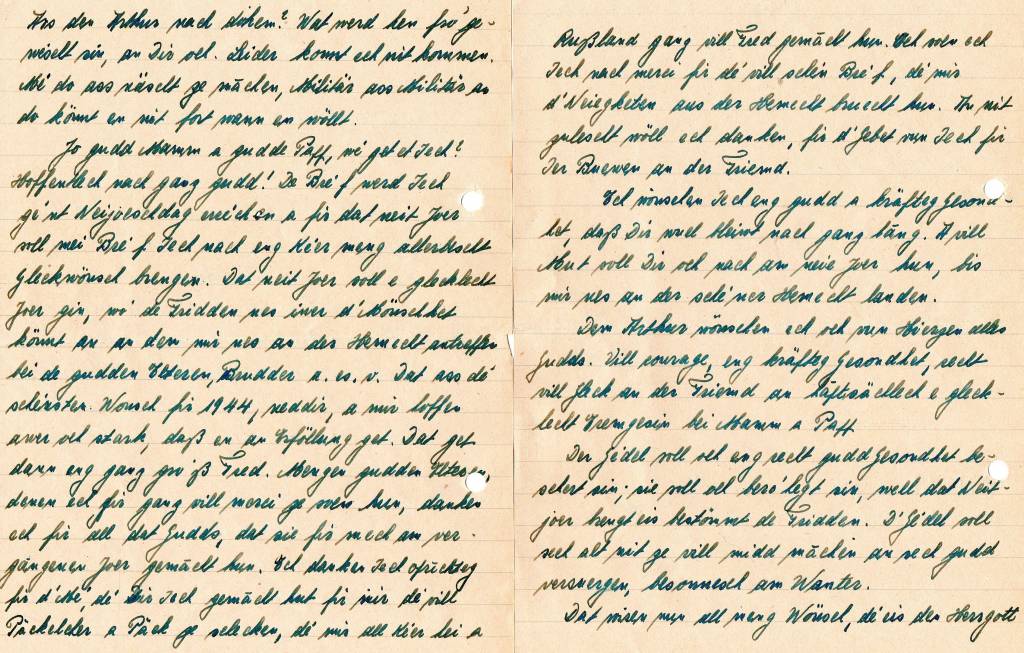 Ass den Arthur nach doheem? Wat werd hen fro' ge-
wiescht sin, an Dir och. Leider konnt ech nit kommen.
Mé do ass näscht ze maachen, Militär ass Militär an
do könnt en nit fort wann en wöllt.
Jo gudd Mamm a gudde Papp, wé get et Iech?
Hoffentlech nach gang gudd! De Bréf werd Iech
gént Neijoeschdag erreichen a fir dat neit Joer
soll mei Bréf Iech nach eng Kéier meng allerbescht
Gleckwönsch brengen. Dat neit Joer soll e glecklecht
Joer gin, wo' de Fridden nes iwer d'Mönschhet
könnt an an dem mir nes an der Hemecht antreffen
bei de gudden Elteren, Brudder a. es. v. Dat ass de'
schénsten Wonsch fir 1944, neddir, a mir hoffen
awer och stark, daß en an Erföllung get. Dat get
dann eng gang gro'ß Fred. Mengen gudden Elteren,
denen ech fir gang vill merci ze soen hun, danken
ech fir all dat Gudds, dat sie fir mech am ver-
gangenen Joer gemacht hun. Ech danken Iech opricteg
fir d'Mé, dé Dir Iech gemacht hut fir mir dé vill
Päckelcher a Päck ze schecken, dé mir all Kéier hei a
Rußland gang vill Fred gemacht hun. Ech soen ech
Iech nach merci fir dé vill schéin Bréf, dé mir
d'Neiegketen aus der Hemecht bruecht hun. An nit
zulescht wöll ech danken, fir d'Gebet vun Iech fir
Ier Buewen an der Friemd.
Ech wönschen Iech eng gudd a kräfteg Gesond-
het, daß Dir nach bleiwt nach gang lang. A vill
Mut soll Dir och nach am neie Joer hun, bis
mir nes an der schéner Hemecht landen.
Dem Arthur wönschen ech och vun Hiergen alles
Gudds. Vill courage, eng kräfteg Gesondhet, recht
vill Gleck an der Friemd an haftsächlech e gleck-
lecht Eremgesin bei Mamm a Papp.
Der Gédel soll och eng recht gudd Gesondhet be-
schert sin; sie soll och berohegt sin, well dat Neit-
joer brengt eis bestömmt de Fridden. D'Gédel soll
sech alt nit ze vill midd maachen an sech gudd
versuergen, besonnesch am Wanter.
Dat wiren nun all meng Wönsch, dé eis den Herrgott